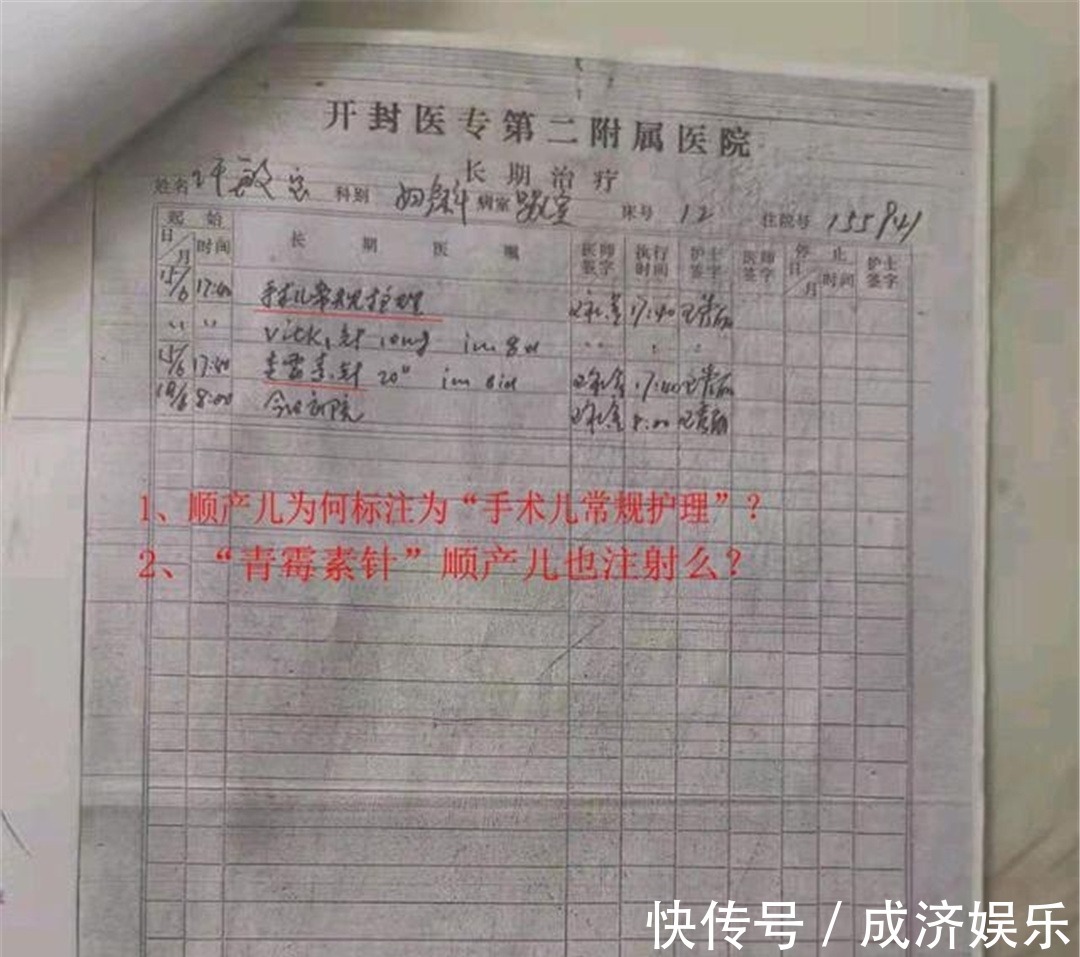 开封医专第二附属医院
长期治疗
姓名 科别 妇产科 病室 床号 12 住院号 155941
起始 长期医嘱 医师签字 执行时间 护士签字 医师签字 停止 护士签字
日/月 时间 日/月 时间
15/6 17:40 手术儿常规护理 17:40
" " Vitk1针 10mg im qd " : :
15/6 17:40 青霉素针 20" im bid 17:40
18/6 8:00 今日出院 8:00
1、顺产儿为何标注为“手术儿常规护理”?
2、“青霉素针”顺产儿也注射么?
快传号 / 成济娱乐